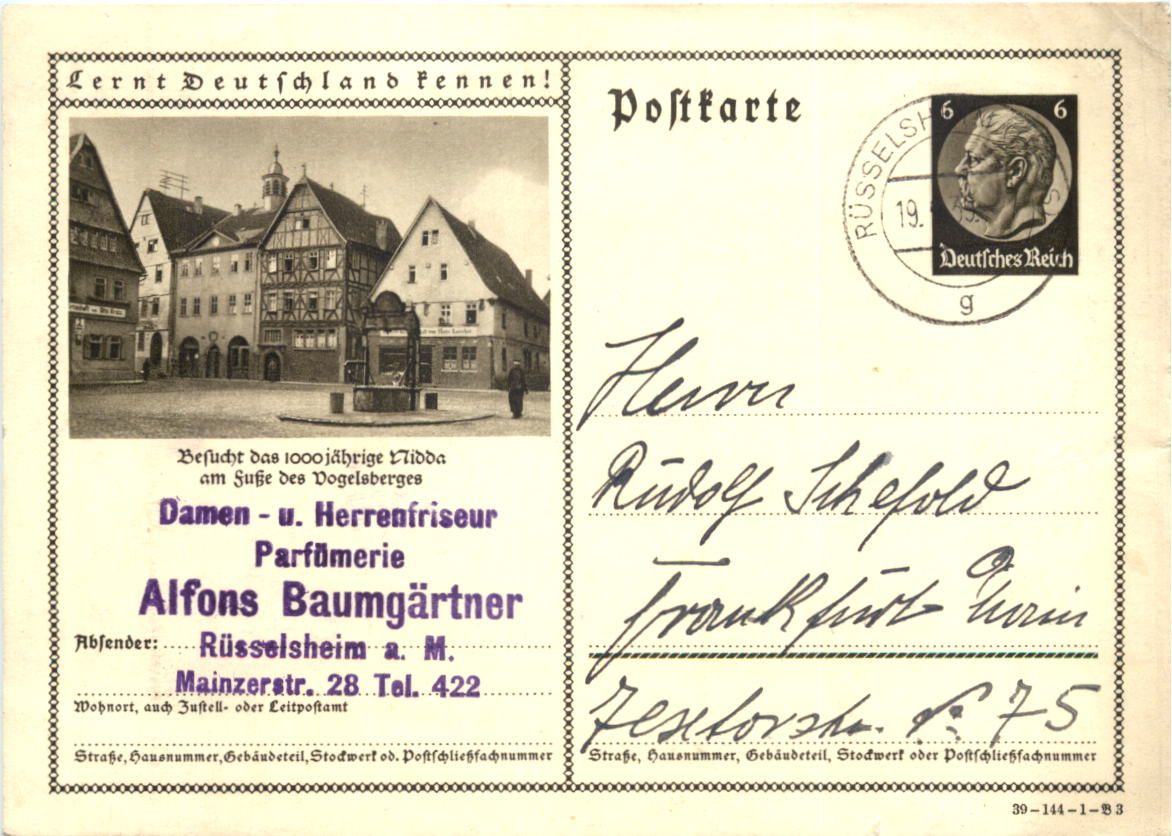 Lernt Deutschland kennen!
Postkarte
RÜSSELSH
19.
g
6 6
Deutsches Reich
Besucht das 1000jährige Nidda
am Fuße des Vogelsberges
Damen - u. Herrenfriseur
Parfümerie
Alfons Baumgärtner
Absender: Rüsselsheim a. M.
Mainzerstr. 28 Tel. 422
Wohnort, auch Zustell- oder Leitpostamt
Straße, Hausnummer, Gebäudeteil, Stockwerk od. Postschließfachnummer
Herrn
Rudolf Schefold
Frankfurt Main
No 75
Straße, Hausnummer, Gebäudeteil, Stockwerk oder Postschließfachnummer
39-144-1-B3